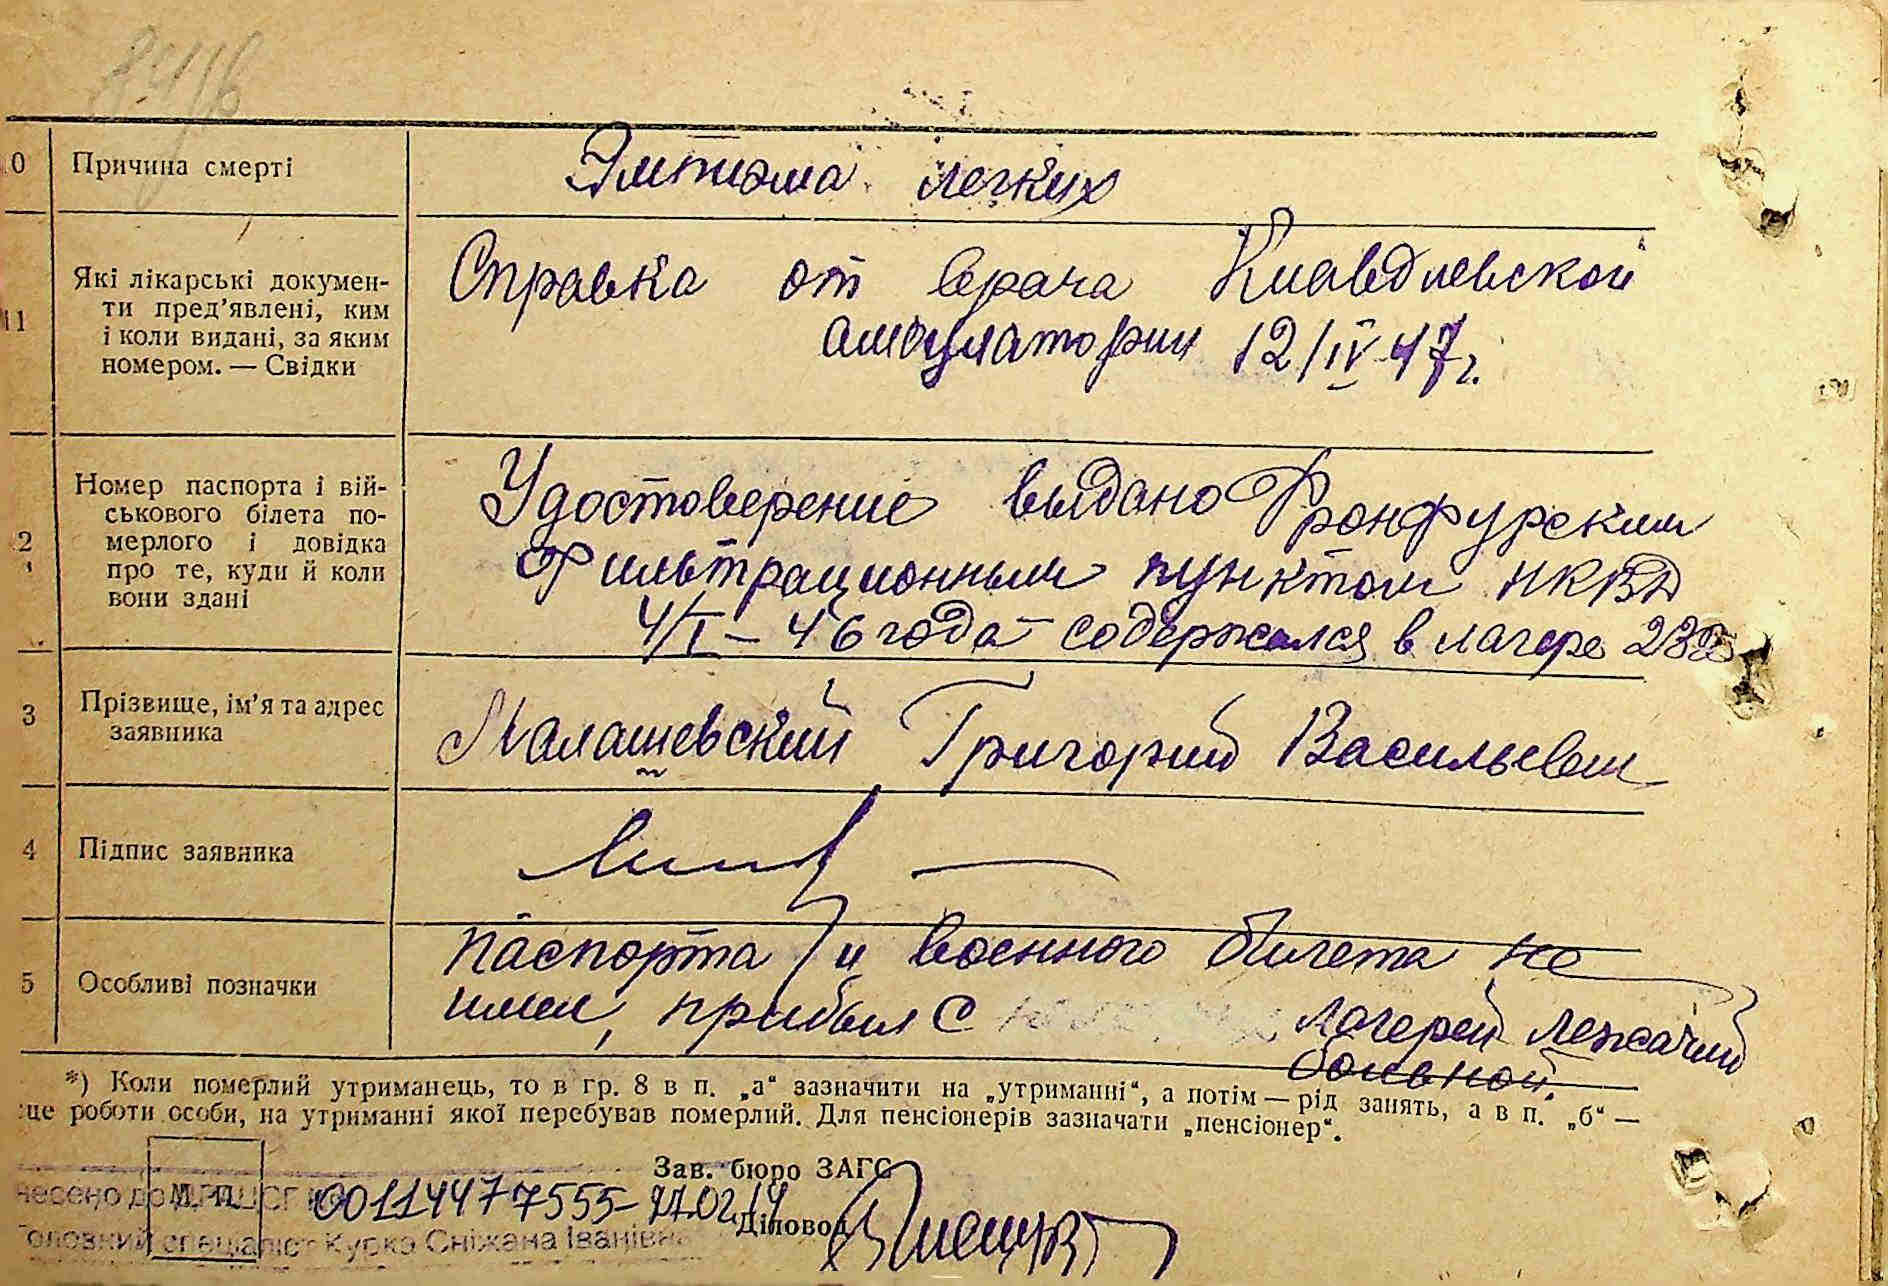 8416
10 Причина смерті
Эмпиэма легких
11 Які лікарські докумен-
ти пред’явлені, ким
і коли видані, за яким
номером. — Свідки
Справка от врача Клавдиевской
амбулатории 12/IV 47 г.
2 Номер паспорта і вій-
ськового білета по-
мерлого і довідка
про те, куди й коли
вони здані
Удостоверение выдано Фронфурским
Фильтрационным пунктом НКВД
4/I – 46 года – содержался в лагере 232
3 Прізвище, ім’я та адрес
заявника
Малашевский Григорий Васильевич
4 Підпис заявника
5 Особливі позначки
паспорта и военного билета не
имел, прибыл с лагерей лежачий
больной.
*) Коли померлий утриманець, то в гр. 8 в п. „а“ зазначити на „утриманні“, а потім — рід занять, а в п. „б“ —
це роботи особи, на утриманні якої перебував померлий. Для пенсіонерів зазначати „пенсіонер“.
Зав. бюро ЗАГС
несено до М. П. 00114477555-
Діловод
оловний спеціаліст Курко Сніжана Іванівна